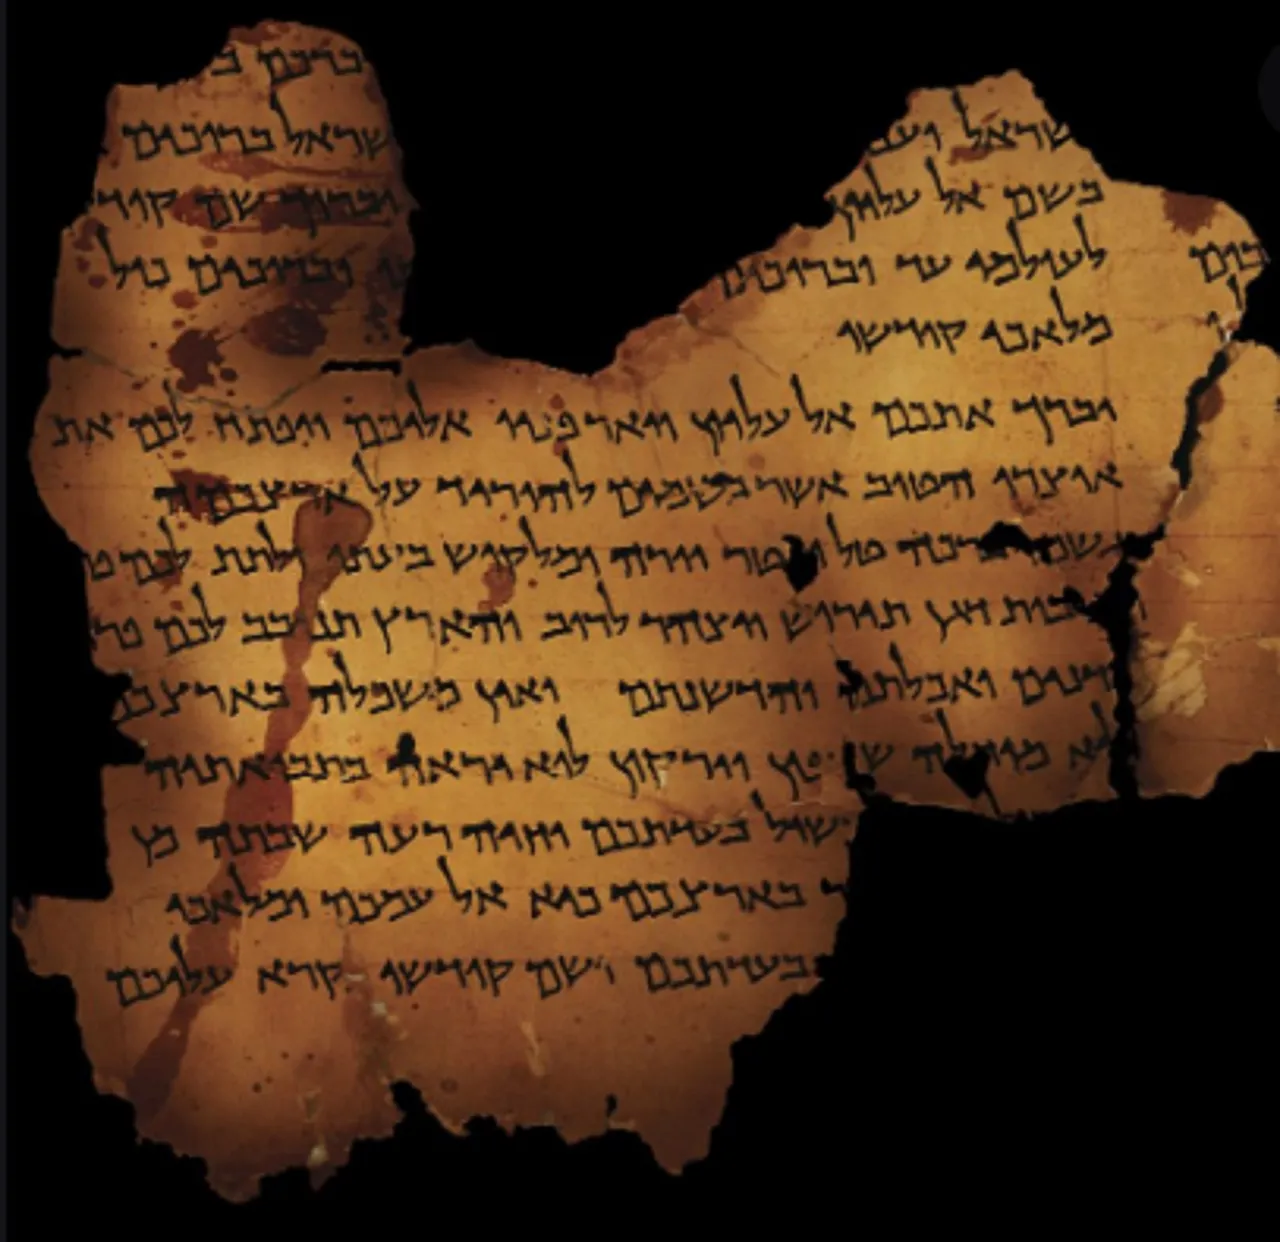 שראל שראל ברוכים
בשם אל עליון וברוך שם קוד
לעולמי עד וברוכים וברוכים כול
מלאכי קודשו
יברך אתכם אל עליון ויאר פניו אליכם ויפתח לכם את
אוצרו הטוב אשר בשמים להוריד על ארצכמה
גשמי ברכה טל ומטר יורה ומלקוש בעתו ולתת לכם פ
בות דגן תירוש ויצהר לרוב והארץ תנובב לכם פרי
דנים ואכלתם והדשנתם ואין משכלה בארצכם
לא מוחלה שדפון וירקון לוא יראה בתבואתיה
שול בעדתכם וחיה רעה שבתה מן
ר בארצכם כיא אל עמכם ומלאכי
בעדתכם ושם קודשו נקרא עליכם